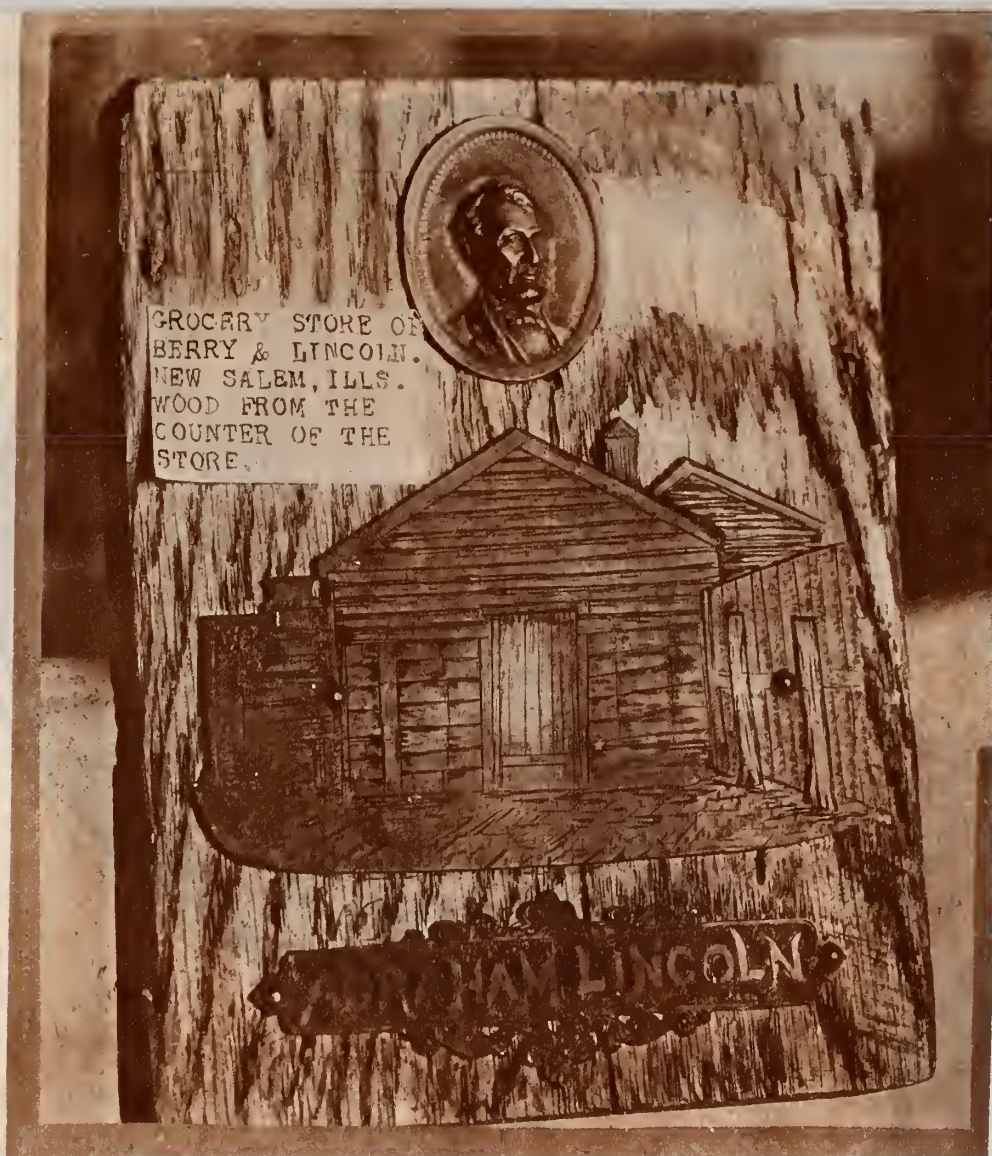 GROCERY STORE OF
BERRY & LINCOLN.
NEW SALEM, ILLS.
WOOD FROM THE
COUNTER OF THE
STORE.
ABRAHAM LINCOLN